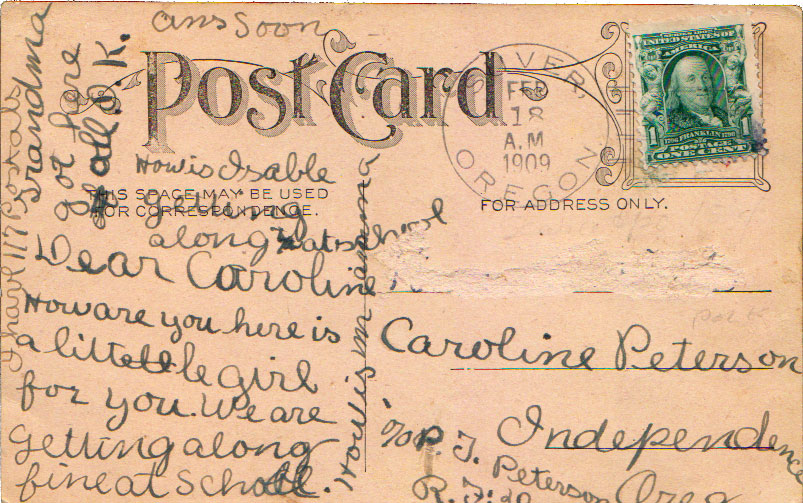 ans Soon
Post Card
DEVER,
FEB
18
A.M
1909
OREGON
UNITED STATES OF
AMERICA
1
1
1706 FRANKLIN 1790
POSTAGE
ONE CENT
THIS SPACE MAY BE USED
FOR CORRESPONDENCE.
FOR ADDRESS ONLY.
How is Isable
getting
along at school
Dear Caroline
How are you here is
a little girl
for you. We are
getting along
fine at School.
How is mamma
Grandma
got here
all O.K.
I have 117 Postals
Caroline Peterson
Independence
c/o P. J. Peterson
Oreg
R.F.D.